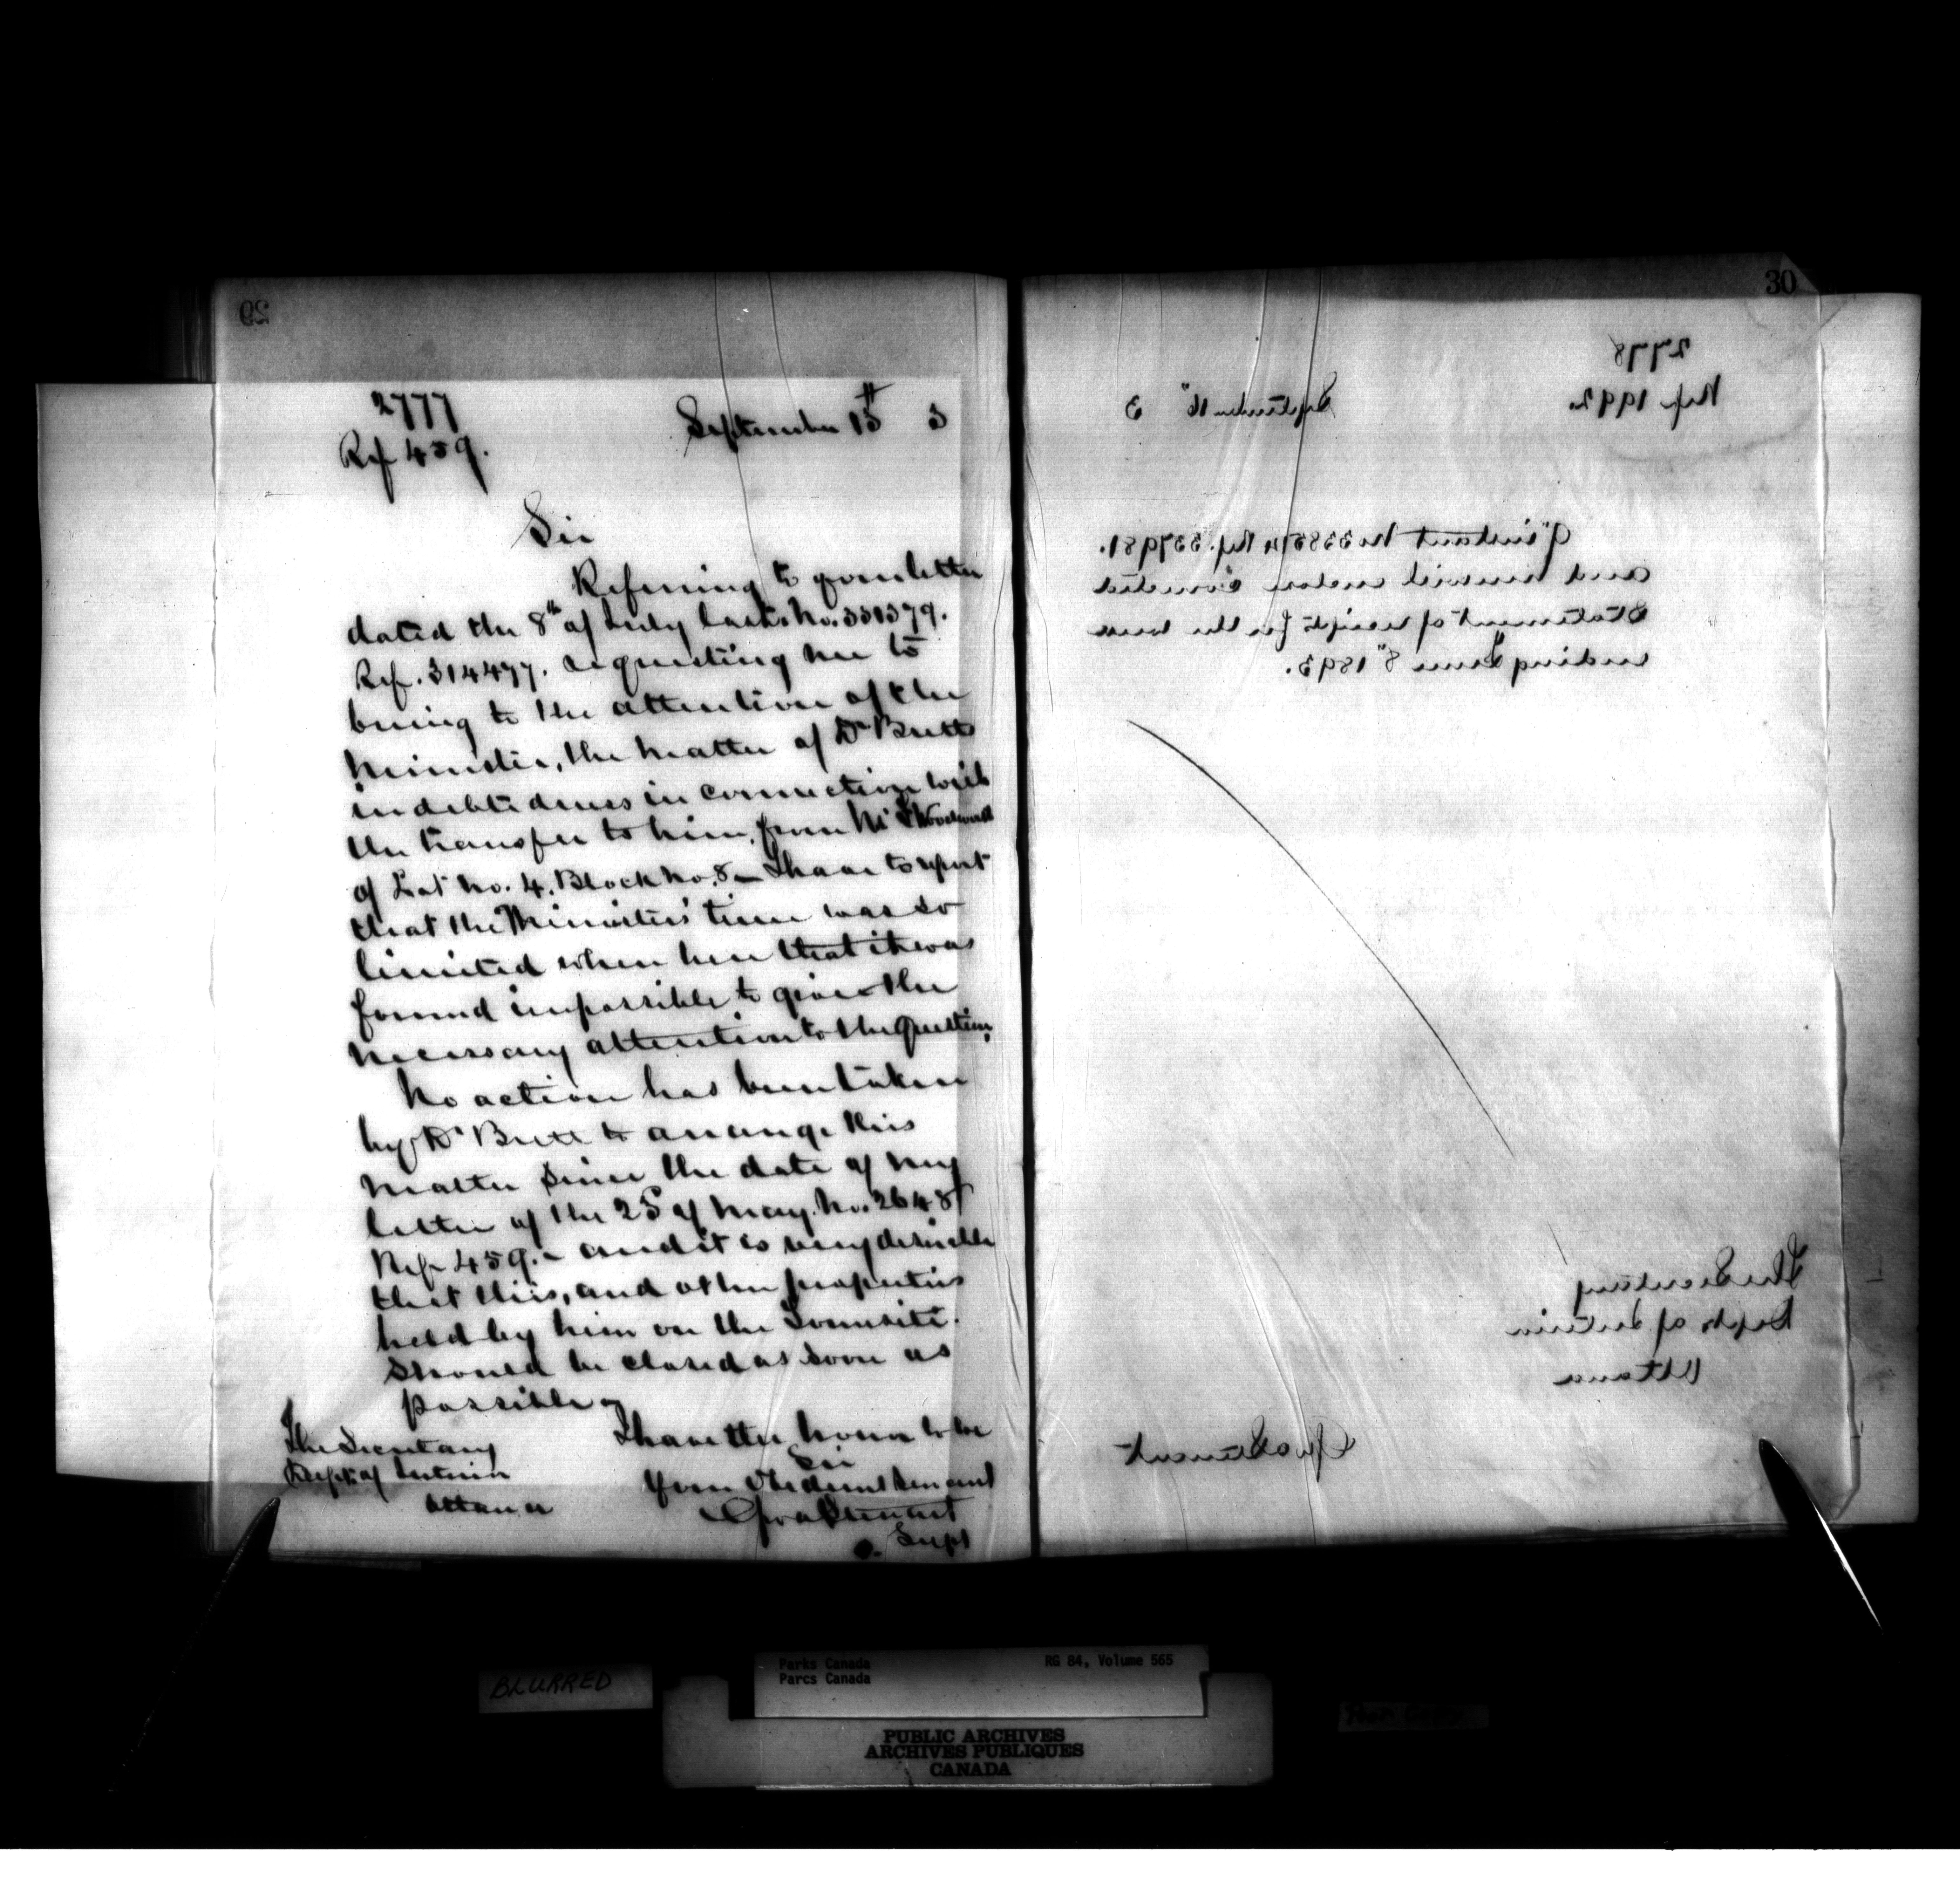 29
2777
Ref 459.
September 15th 3
Sir
Referring to your letter
dated the 8th of July last. No. 331379.
Ref. 314477. requesting me to
bring to the attention of the
Minister, the matter of Dr Bretts
indebtedness in connection with
the transfer to him, from Mr Woodworth
of Lot No. 4. Block No. 8 — I have to report
that the Ministers' time was so
limited when here that it was
found impossible to give the
necessary attention to the question.
No action has been taken
by Dr Brett to arrange this
matter since the date of my
letter of the 25 of May. No. 2648
Ref 459. – and it is very desirable
that this, and other properties
held by him on the Townsite.
should be closed as soon as
possible –
I have the honor to be
Sir
Your Obedient Servant
Geo A Stewart
Supt
The Secretary
Dept. of Interior
Ottawa
30
2778
Ref 1992.
September 16" 3
9" instant No 338514 Ref. 337981.
and herewith enclose corrected
Statement of receipts for the week
ending June 8" 1893.
The Secretary
Dept. of Interior
Ottawa
Geo A Stewart
BLURRED
Parks Canada
Parcs Canada
RG 84, Volume 565
Poor Copy
PUBLIC ARCHIVES
ARCHIVES PUBLIQUES
CANADA